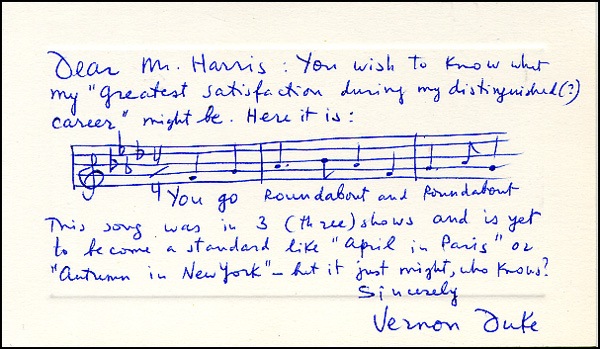 Dear Mr. Harris: You wish to know what
my "greatest satisfaction during my distinguished(?)
career" might be. Here it is:
4
4 You go Roundabout and Roundabout
This song was in 3 (three) shows and is yet
to become a standard like "April in Paris" or
"Autumn in New York" – but it just might, who knows?
Sincerely
Vernon Duke